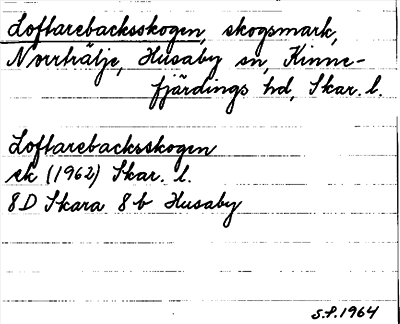 Loftarebacksskogen, skogsmark,
Norrhälje, Husaby sn, Kinne-
fjärdings hd, Skar. l.
Loftarebacksskogen
ek (1962) Skar. l.
8D Skara 8b Husaby
S.F. 1964